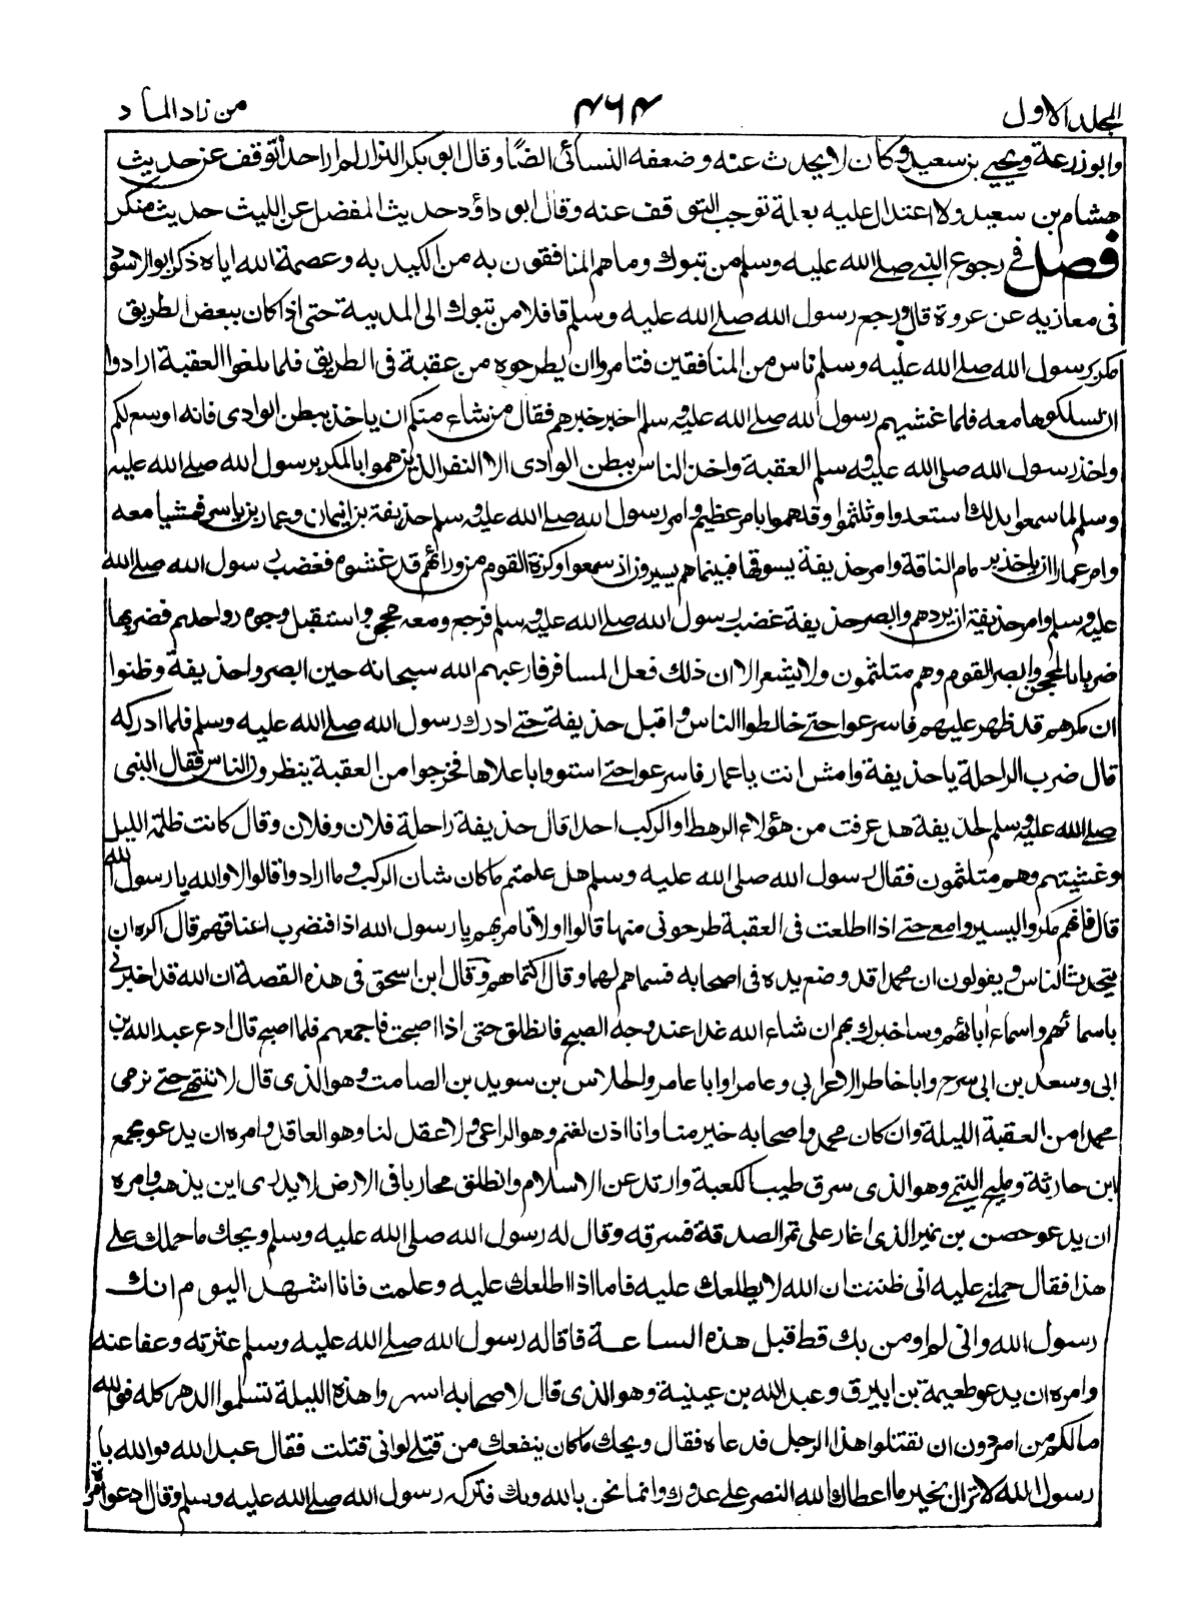 المجلد الاول
۴۶۴
من زاد المعاد
وابوزرعة ويحيى بن سعيد وكان لا يحدث عنه وضعفه النسائى ايضًا وقال ابو بكر البزار لم ار احدا توقف عن حديث
هشام بن سعيد ولا اعتدال عليه بعلة توجب التوقف عنه وقال ابو داؤد حديث المفضل عن الليث حديث منكر
فصل فى رجوع النبى صلى الله عليه وسلم من تبوك وما هم المنافقون به من الكيد به وعصمة الله اياه ذكر ابو الاسود
فى مغازيه عن عروة قال ورجع رسول الله صلى الله عليه وسلم قافلا من تبوك الى المدينة حتى اذا كان ببعض الطريق
مكر برسول الله صلى الله عليه وسلم ناس من المنافقين فتامروا ان يطرحوه من عقبة فى الطريق فلما بلغوا العقبة ارادوا
ان تسلكوها معه فلما غشيهم رسول الله صلى الله عليه وسلم اخبر خبرهم فقال من شاء منكم ان ياخذ ببطن الوادى فانه اوسع لكم
واخذ رسول الله صلى الله عليه وسلم العقبة واخذ الناس ببطن الوادى الا النفر الذين هموا بالمكر برسول الله صلى الله عليه
وسلم لما سمعوا بذلك استعدوا وتلثموا وقد هموا بامر عظيم وامر رسول الله صلى الله عليه وسلم حذيفة بن اليمان وعمار بن ياسر فمشيا معه
وامر عمارا ان ياخذ بزمام الناقة وامر حذيفة يسوقها فبينما هم يسيرون اذ سمعوا وكزة القوم من ورائهم قد غشوه فغضب رسول الله صلى الله
عليه وسلم وامر حذيفة ان يردهم وابصر حذيفة غضب رسول الله صلى الله عليه وسلم فرجع ومعه محجن واستقبل وجوه رواحلهم فضربها
ضربا بالمحجن وابصر القوم وهم متلثمون ولا يشعر الا ان ذلك فعل المسافر فارعبهم الله سبحانه حين ابصروا حذيفة وظنوا
ان مكرهم قد ظهر عليهم فاسرعوا حتى خالطوا الناس واقبل حذيفة حتى ادرك رسول الله صلى الله عليه وسلم فلما ادركه
قال ضرب الراحلة يا حذيفة وامش انت يا عمار فاسرعوا حتى استووا باعلاها فخرجوا من العقبة ينظرون الناس فقال النبى
صلى الله عليه وسلم لحذيفة هل عرفت من هؤلاء الرهط او الركب احدا قال حذيفة راحلة فلان وفلان وقال كانت ظلمة الليل
وغشيتهم وهم متلثمون فقال رسول الله صلى الله عليه وسلم هل علمتم ما كان شان الركب وما ارادوا قالوا لا والله يا رسول الله
قال فانهم مكروا ليسيروا معى حتى اذا اطلعت فى العقبة طرحونى منها قالوا اولا تامر بهم يا رسول الله اذا فنضرب اعناقهم قال اكره ان
يتحدث الناس ويقولون ان محمدا قد وضع يده فى اصحابه فسماهم لهما وقال اكتماهم وقال ابن اسحق فى هذه القصة ان الله قد اخبرنى
باسمائهم واسماء ابائهم وساخبرك بهم ان شاء الله غدا عند وجه الصبح فانطلق حتى اذا اصبحت فاجمعهم فلما اصبح قال ادع عبد الله بن
ابى وسعد بن ابى سرح وابا خاطر الاعرابى وعامرا وابا عامر والجلاس بن سويد بن الصامت وهو الذى قال لا ننتهى حتى نرمى
محمدا من العقبة الليلة وان كان محمد واصحابه خير منا وانا اذن لغنم وهو الراعى ولا عقل لنا وهو العاقل وامره ان يدعو مجمع
ابن حارثة ومليح التيمى وهو الذى سرق طيب الكعبة وارتد عن الاسلام وانطلق محاربا فى الارض لا يدرى اين يذهب وامره
ان يدعو حصن بن نمير الذى اغار على تمر الصدقة فسرقه وقال له رسول الله صلى الله عليه وسلم ويحك ما حملك على
هذا فقال حملنى عليه انى ظننت ان الله لا يطلعك عليه فاما اذا اطلعك عليه وعلمت فانا اشهد اليوم انك
رسول الله وانى لم اومن بك قط قبل هذه الساعة فاقاله رسول الله صلى الله عليه وسلم عثرته وعفا عنه
وامره ان يدعو طعيمة بن ابيرق وعبد الله بن عيينة وهو الذى قال لاصحابه اسهروا هذه الليلة تسلموا الدهر كله فوالله
مالكم من امر دون ان تقتلوا هذا الرجل فدعاه فقال ويحك ما كان ينفعك من قتلى لو انى قتلت فقال عبد الله فوالله يا
رسول الله لا تزال بخير ما اعطاك الله النصر على عدوك وانما نحن بالله وبك فتركه رسول الله صلى الله عليه وسلم وقال ادعوا مرة